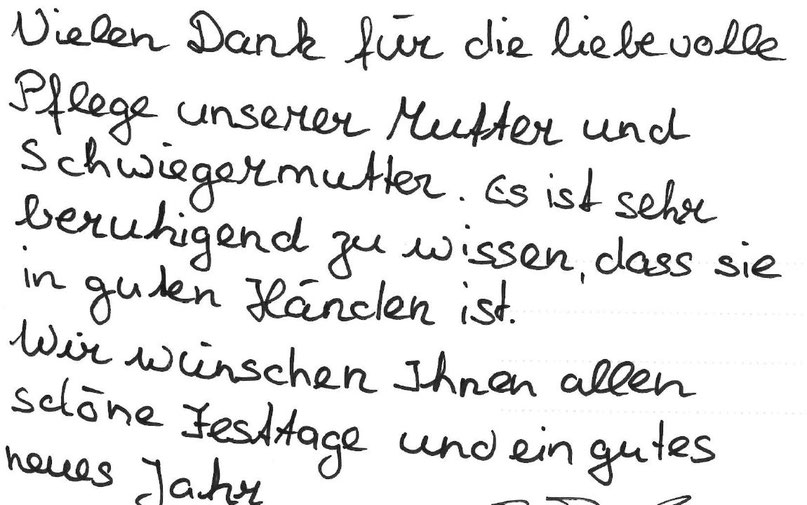 Vielen Dank für die liebevolle
Pflege unserer Mutter und
Schwiegermutter. Es ist sehr
beruhigend zu wissen, dass sie
in guten Händen ist.
Wir wünschen Ihnen allen
schöne Festtage und ein gutes
neues Jahr